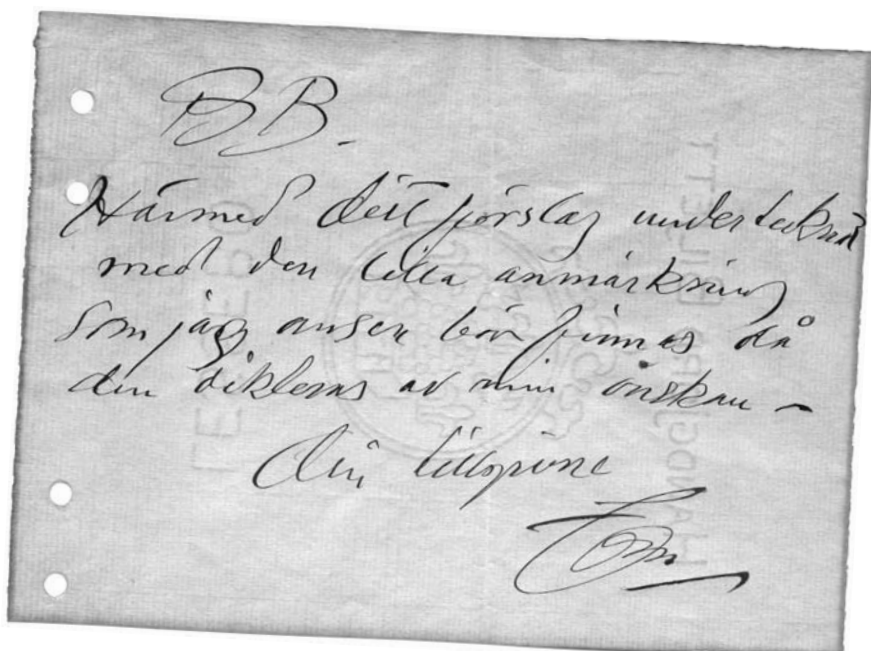 B B.
Härmed ditt förslag undertecknat
med den lilla anmärkning
som jag anser bör finnas då
den dikteras av min önskan –
Din tillgivne